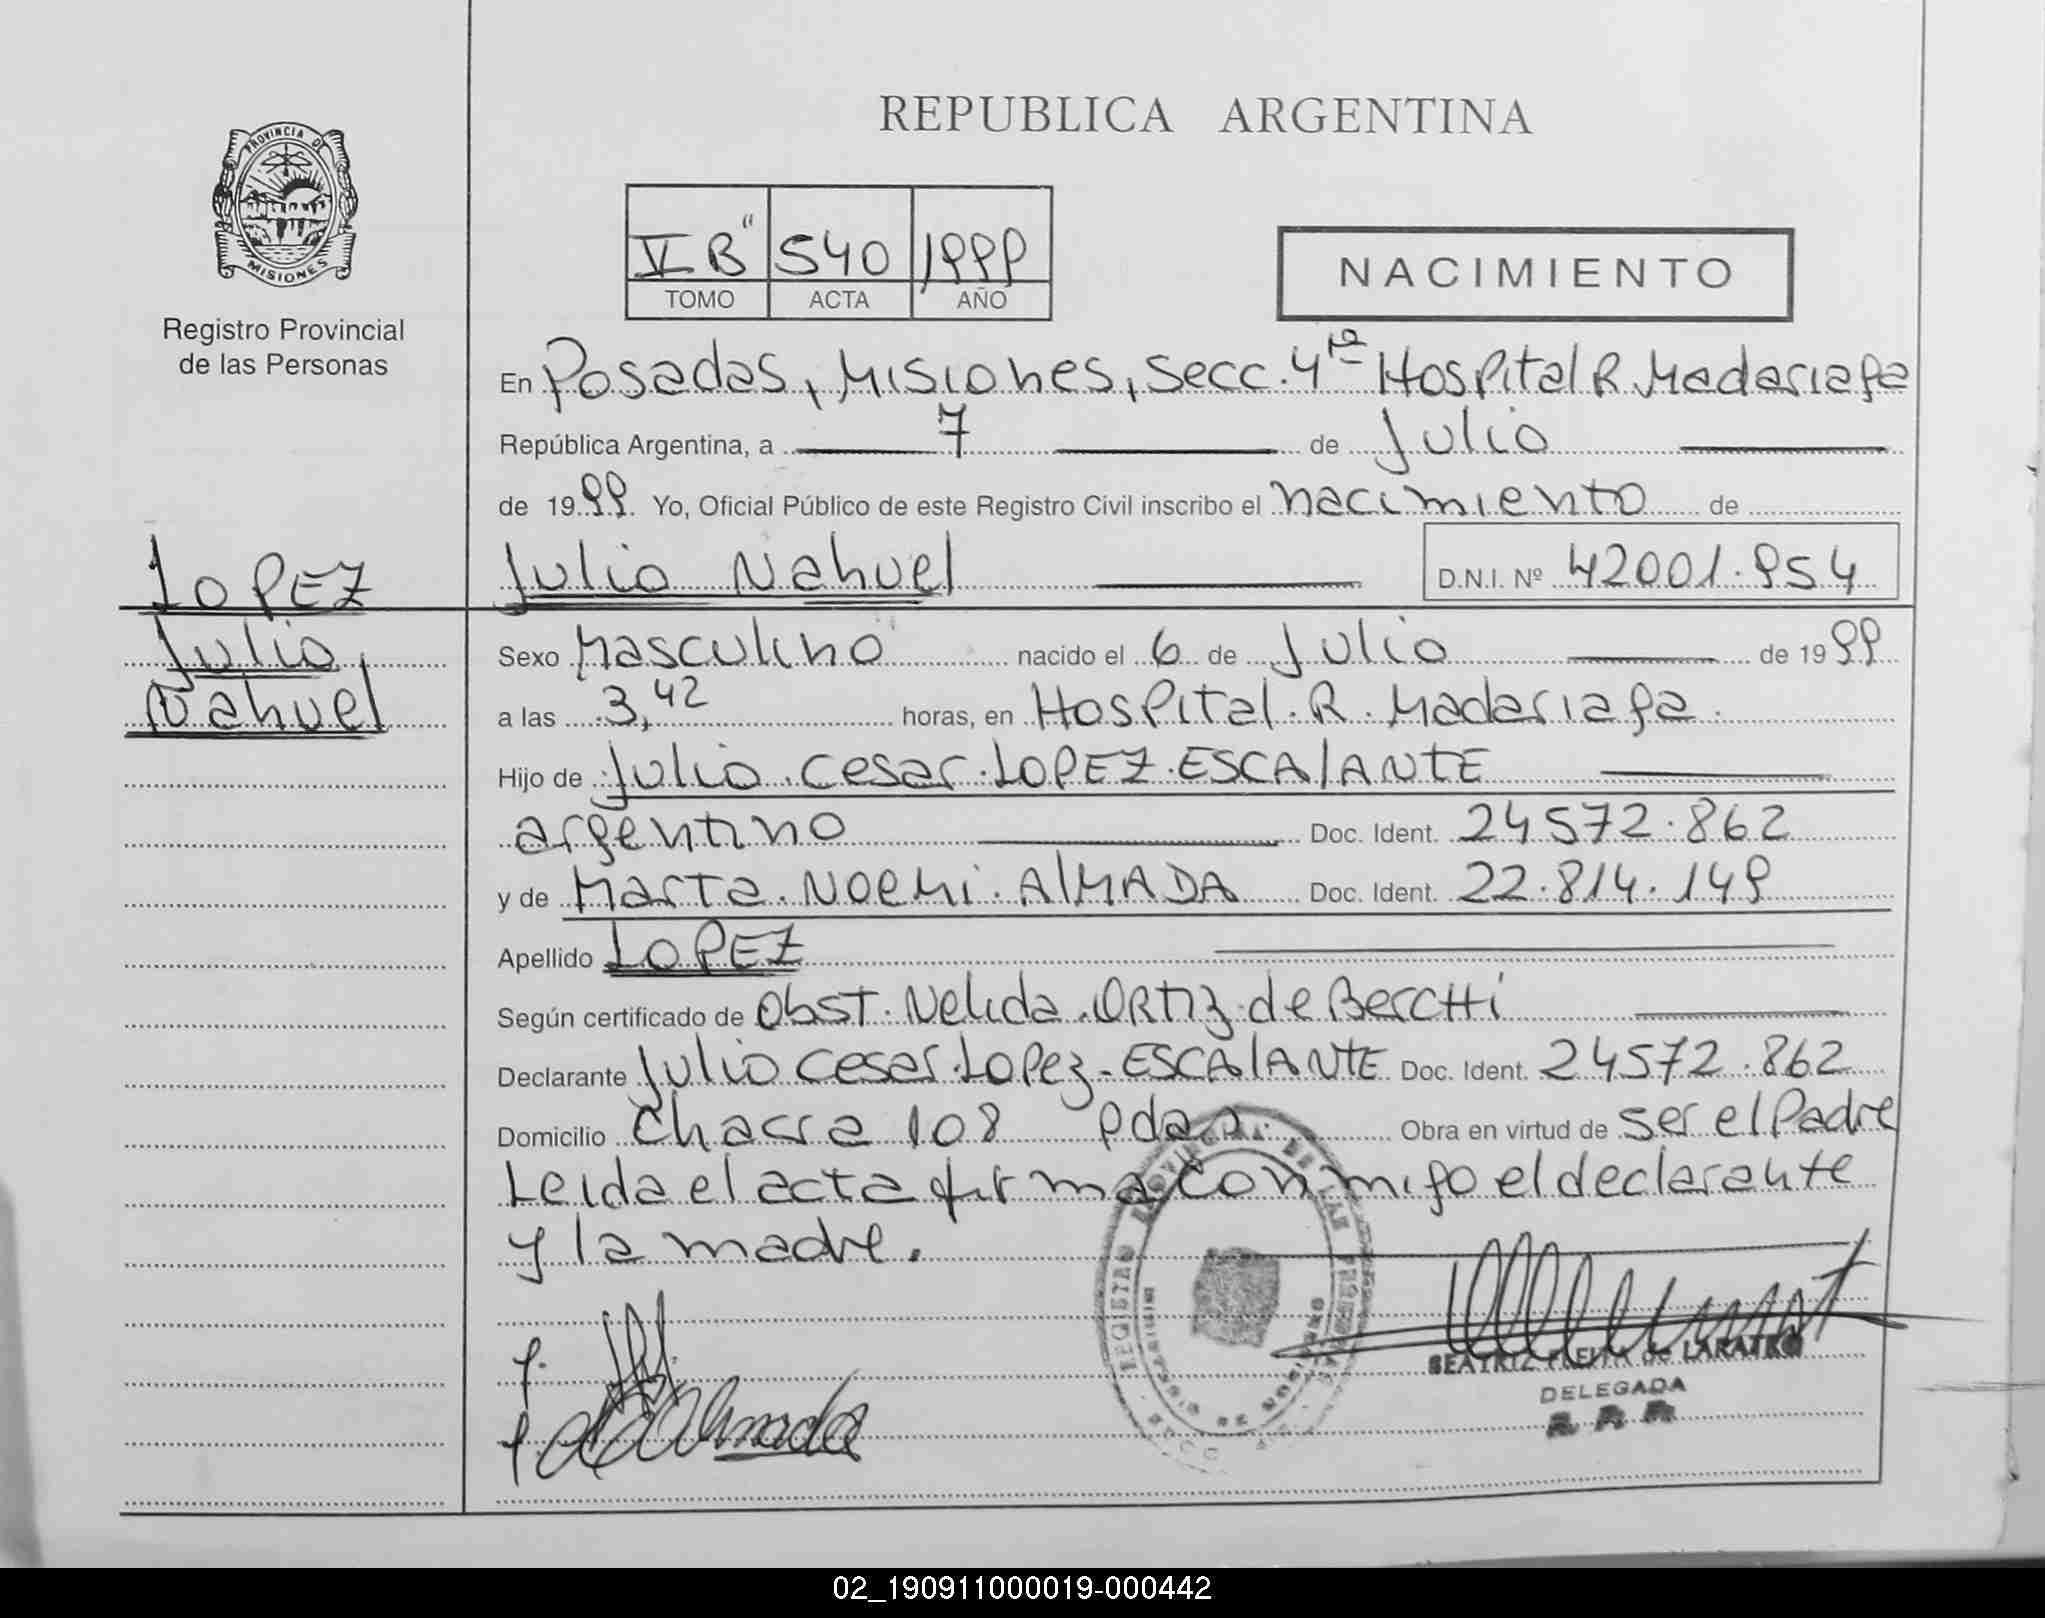 REPUBLICA ARGENTINA
PROVINCIA DE
MISIONES
Registro Provincial
de las Personas
V B" 540 1999
TOMO ACTA AÑO
NACIMIENTO
En Posadas, Misiones, Secc. 4ta Hospital R. Madariaga
República Argentina, a 7 de Julio
de 1999 Yo, Oficial Público de este Registro Civil inscribo el nacimiento de
Julio Nahuel D.N.I. Nº 42001.954
LOPEZ
Julio
Nahuel
Sexo Masculino nacido el 6 de Julio de 1999
a las 3,42 horas, en Hospital. R. Madariaga.
Hijo de Julio. Cesar. LOPEZ. ESCALANTE
argentino Doc. Ident. 24572.862
y de Marta. NOEMi. AlMADA Doc. Ident. 22.814.149
Apellido LOPEZ
Según certificado de Obst. Nelida. ORTIz. de BercHi
Declarante Julio Cesar. Lopez - ESCAlANTE Doc. Ident. 24572.862
Domicilio Chacra 108 Pdas. Obra en virtud de ser el Padre
Leida el acta firma conmigo el declarante
y la madre.
Almada
BEATRIZ de
DELEGADA
R. P. P.
02_190911000019-000442